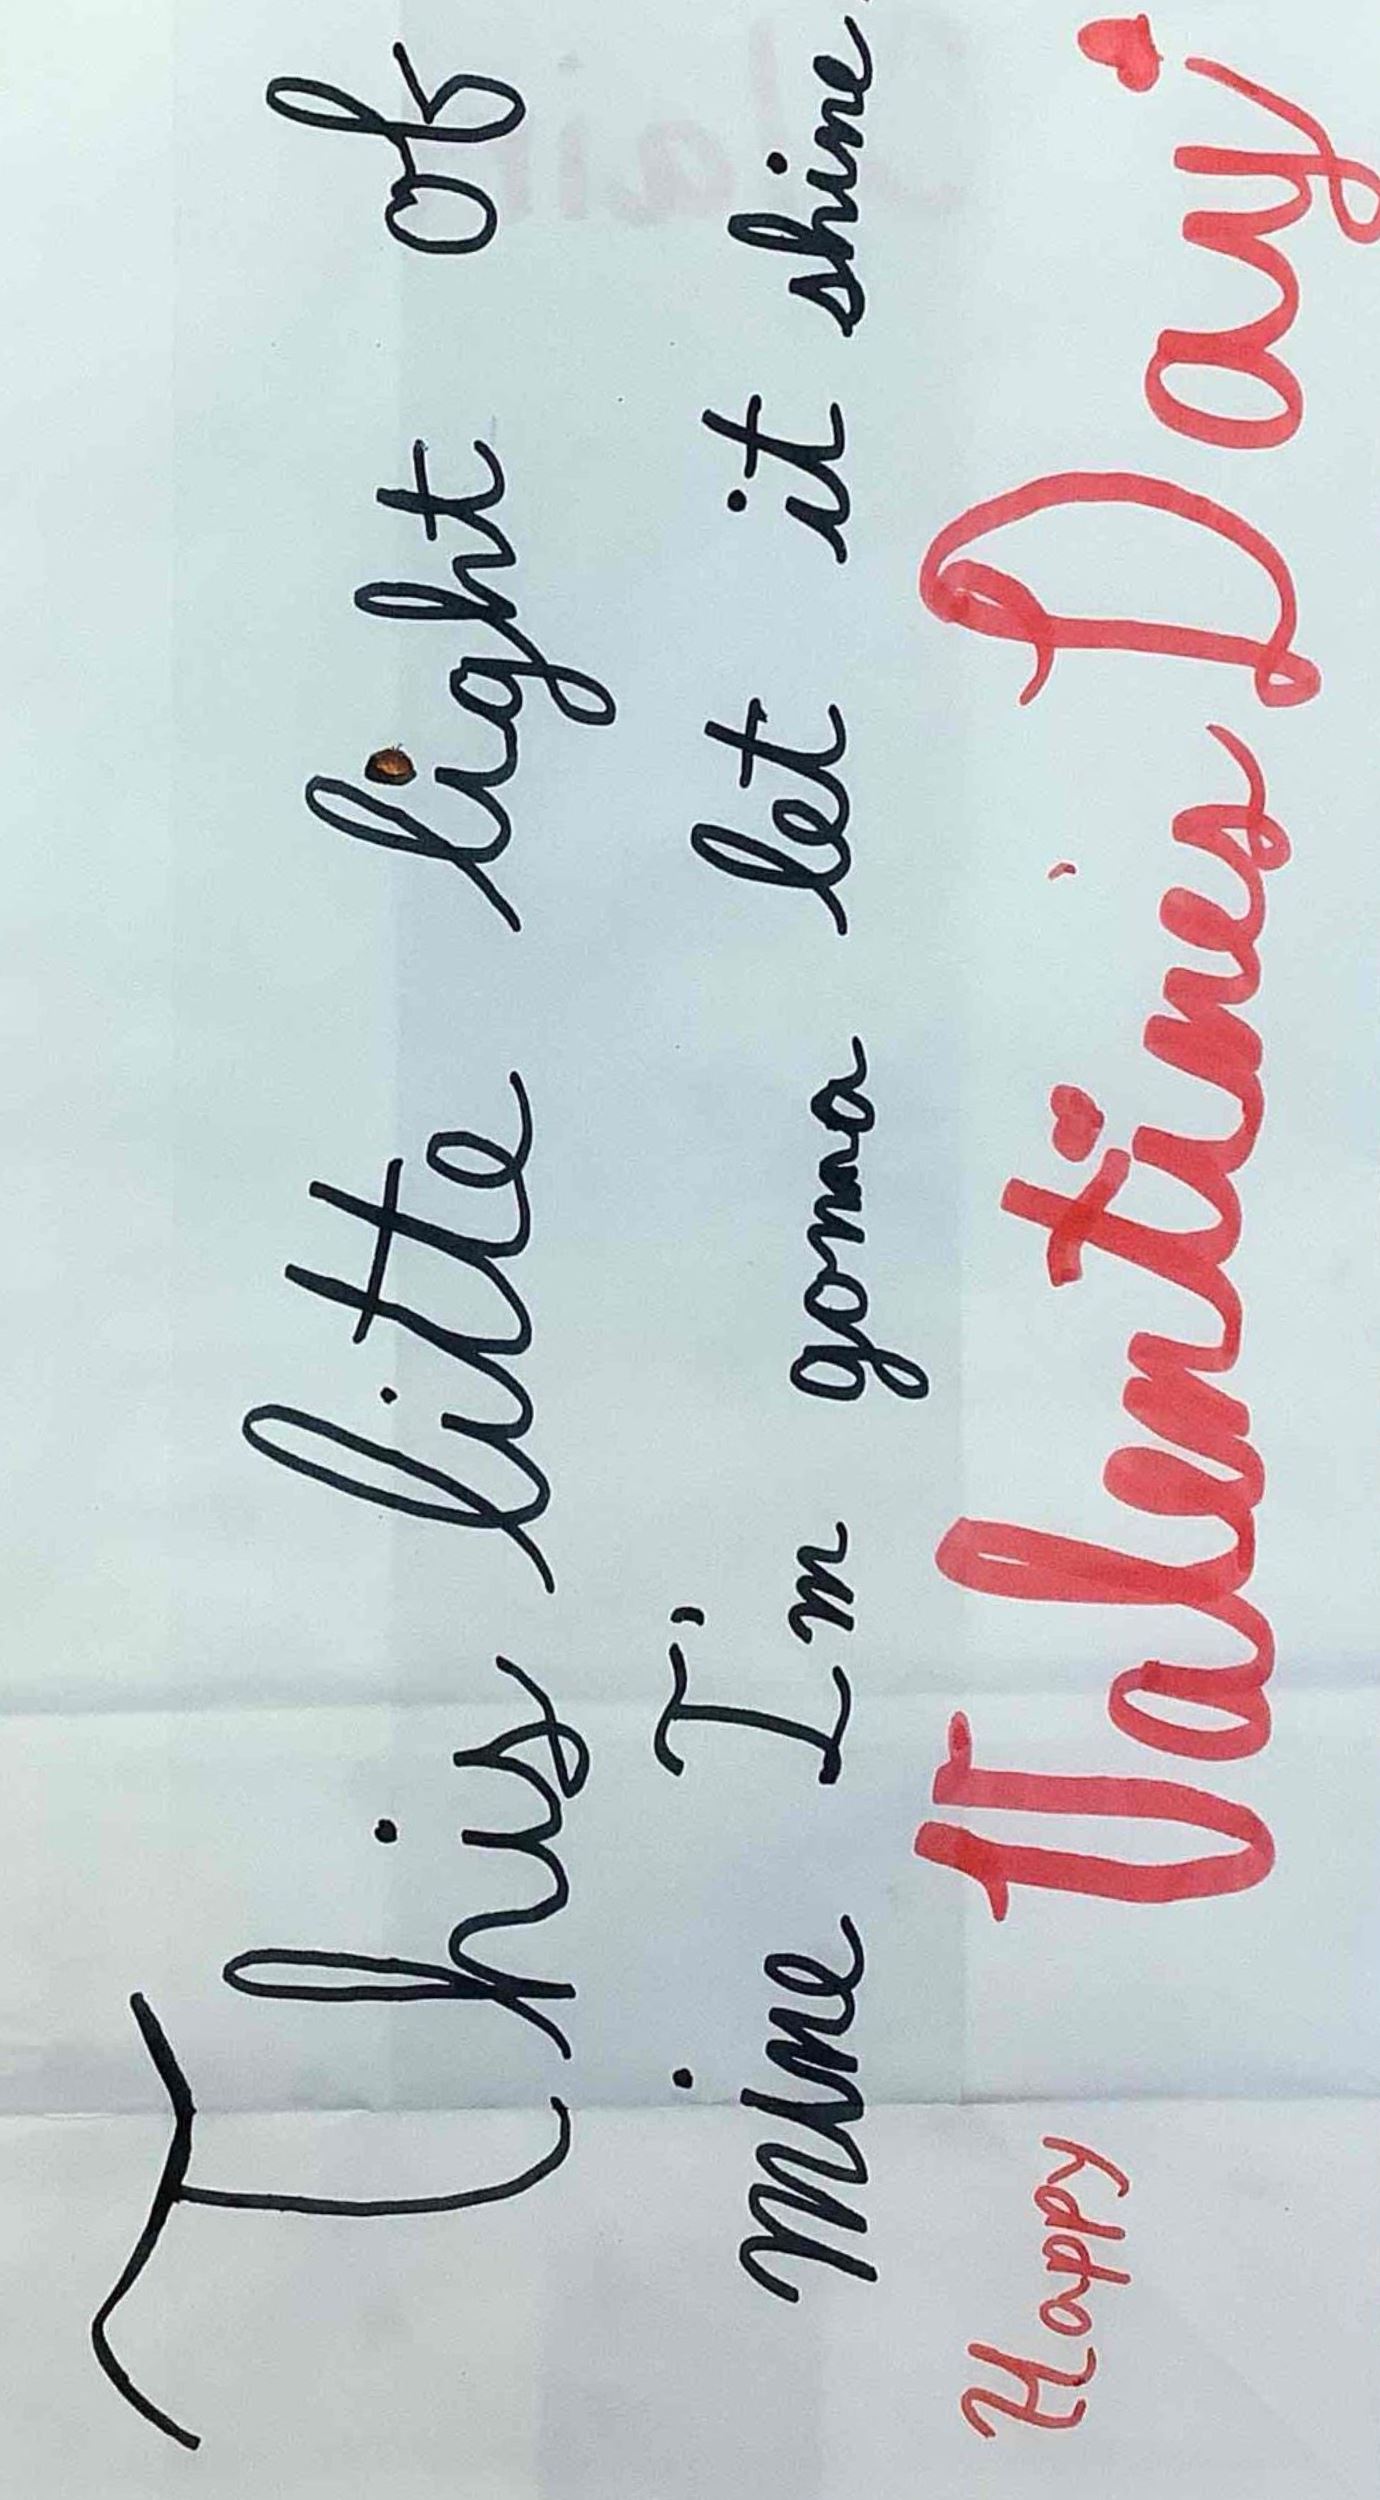 This litte light of
mine I'm gonna let it shine.
Happy Valentine's Day